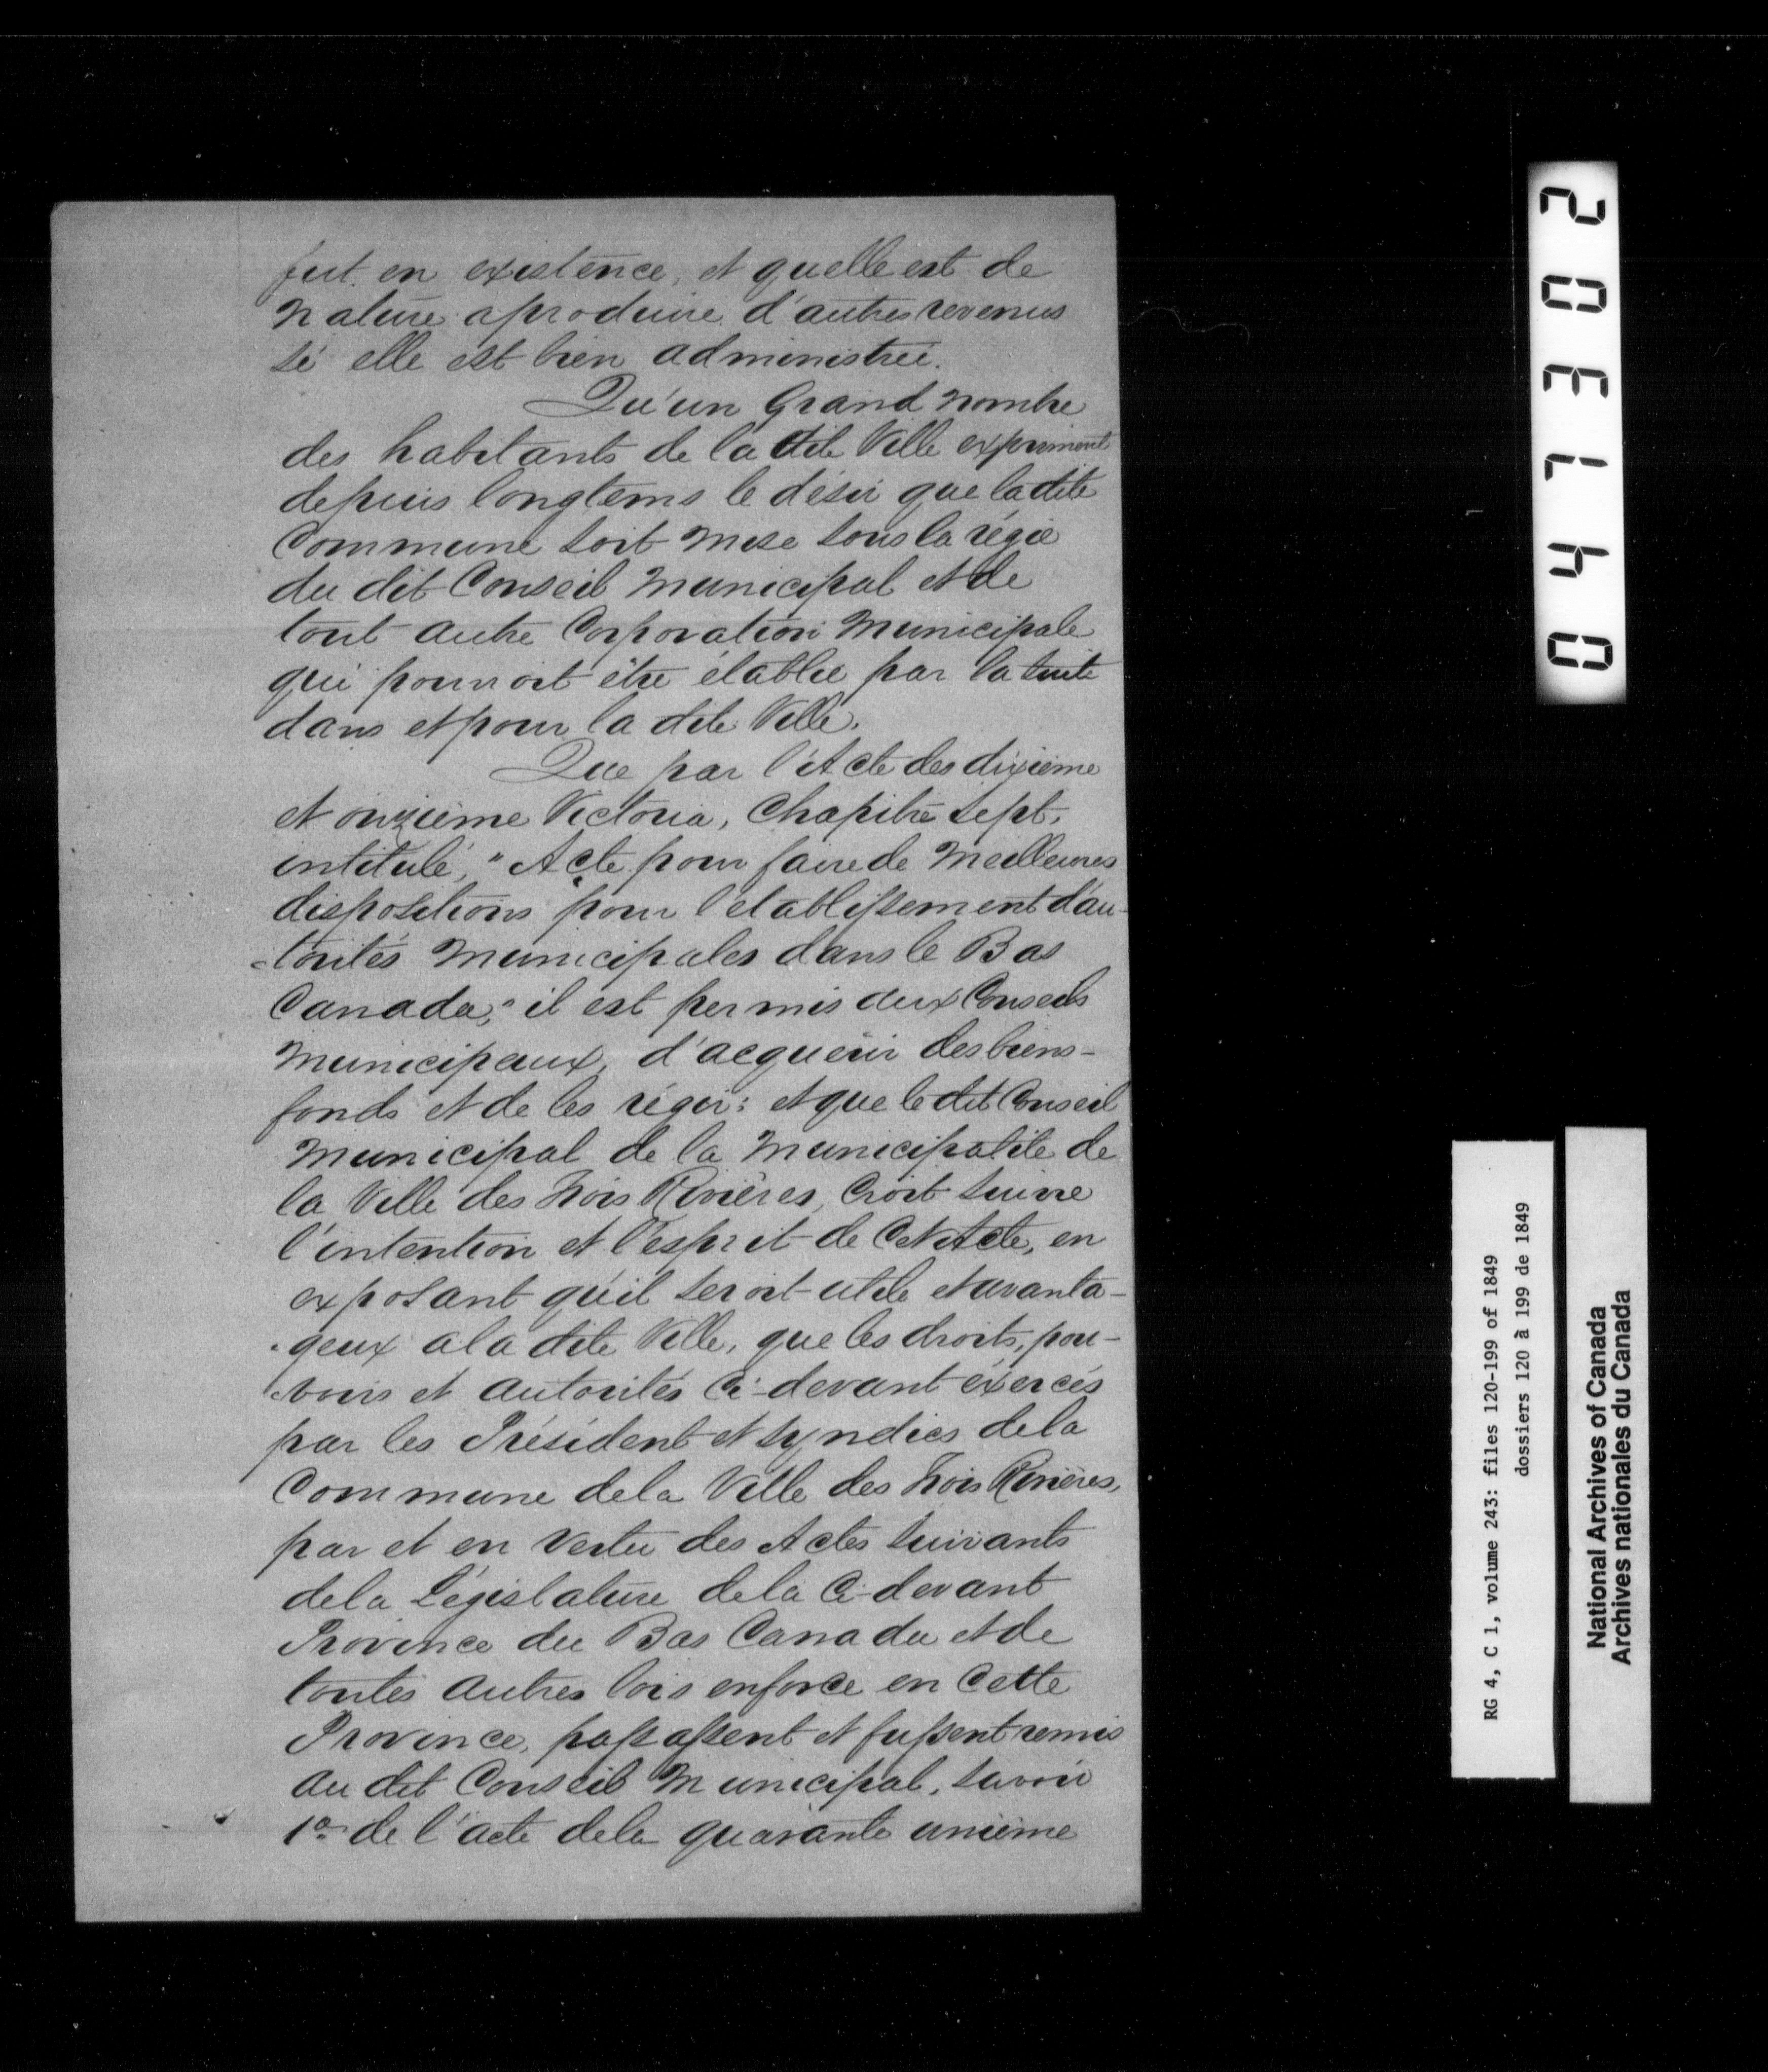 fut en existence, et quelle est de
nature a produire d'autres revenus
si elle est bien administreé.
Qu'un Grand nombre
des habitants de la dite Ville expriment
depuis longtems le désir que la dite
Commune soit mise sous la régie
du dit Conseil Municipal et de
tout autre Corporation Municipale
qui pourroit être établie par la suite
dans et pour la dite Ville.
Que par l'Acte des dixième
et onzième Victoria, Chapitre sept,
intitulé, "Acte pour faire de Meilleures
dispositions pour l'établissement d'au-
-torités Municipales dans le Bas
Canada," il est permis aux Conseils
Municipaux, d'acquérir des biens-
fonds et de les régir; et que le dit Conseil
Municipal de la Municipalité de
la Ville des Trois Rivières, Croit suivre
l'intention et l'esprit de Cet Acte, en
exposant qu'il seroit utile et avanta-
-geux a la dite Ville, que les droits, pou-
-voirs et autorités Ci-devant éxercés
par les Président et syndics de la
Commune de la Ville des Trois Rivières,
par et en vertu des Actes suivants
de la Législature de la Ci-devant
Province du Bas Canada et de
toutes autres lois en force en Cette
Province, passassent et fussent remis
au dit Conseil Municipal, savoir
1o de l'acte de la quarante unième
047302
RG 4, C 1, volume 243: files 120-199 of 1849
dossiers 120 à 199 de 1849
National Archives of Canada
Archives nationales du Canada